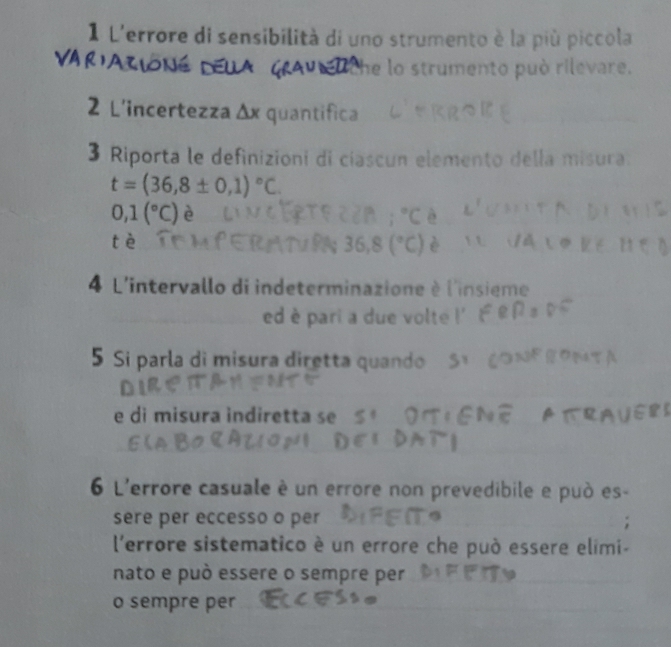 1 L'errore di sensibilità di uno strumento è la più piccola
VARIAZIONE DELLA che lo strumento può rilevare.
2 L'incertezza Δx quantifica L'ERRORE
3 Riporta le definizioni di ciascun elemento della misura:
t = (36,8 ± 0,1) °C.
0,1 (°C) è L'INCERTEZZA ; °C è L'UNITÀ DI MIS
t è TEMPERATURA; 36,8 (°C) è IL VALORE MED
4 L'intervallo di indeterminazione è l'insieme
ed è pari a due volte l' ERRORE
5 Si parla di misura diretta quando SI CONFRONTA
DIRETTAMENTE
e di misura indiretta se SI OTTIENE
ELABORAZIONI DEI DATI
6 L'errore casuale è un errore non prevedibile e può es-
sere per eccesso o per DIFETTO ;
l'errore sistematico è un errore che può essere elimi-
nato e può essere o sempre per DIFETTO
o sempre per ECCESSO